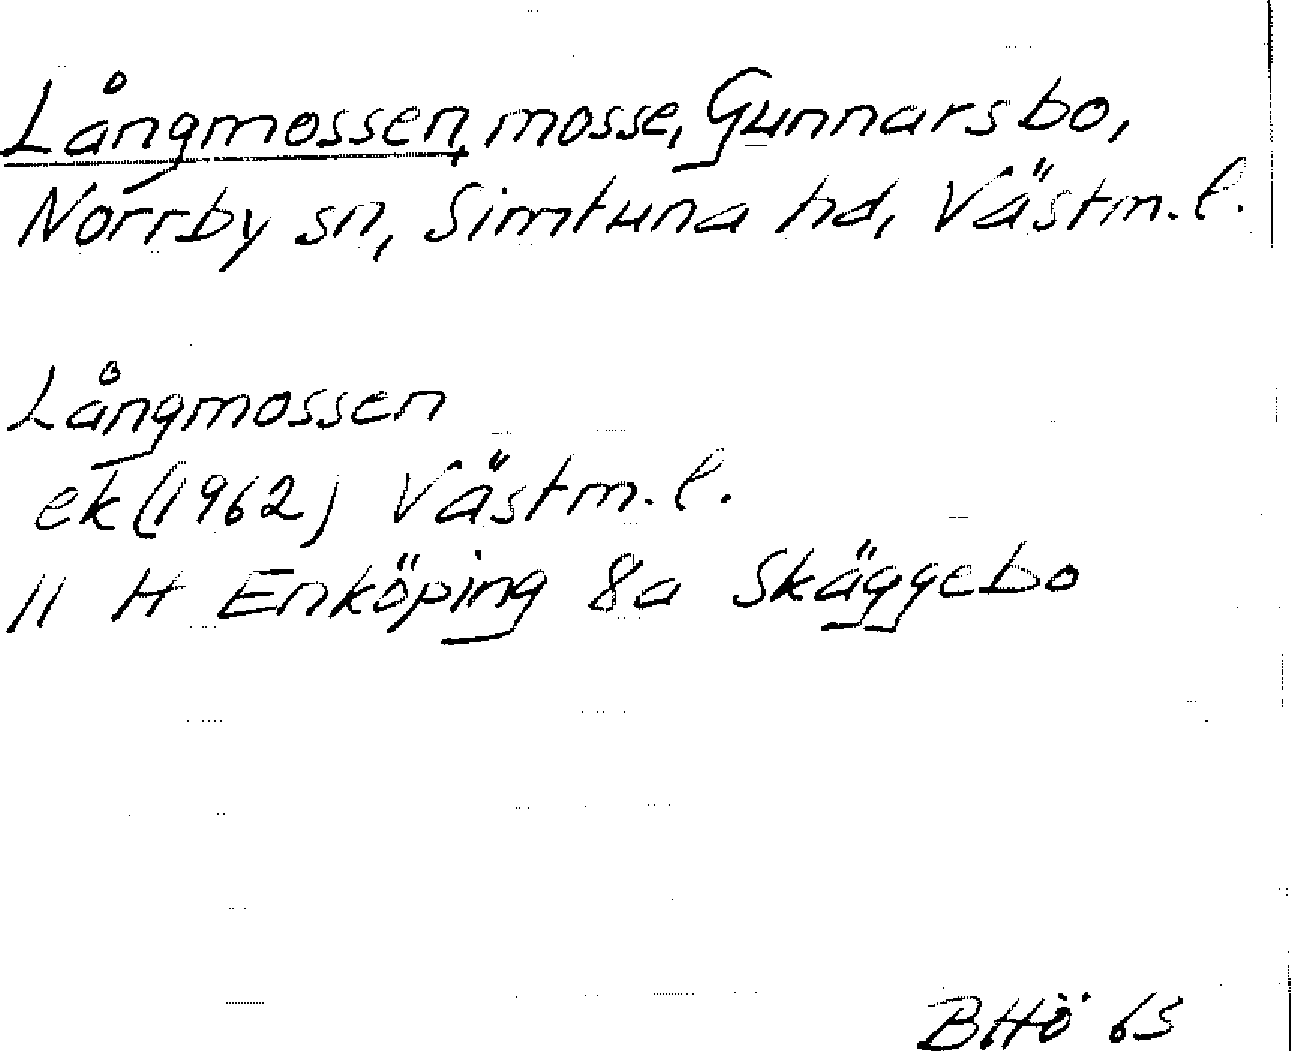 Långmossen, mosse, Gunnarsbo,
Norrby sn, Simtuna hd, Västm. l.
Långmossen
ek (1962) Västm. l.
11 H Enköping 8a Skäggebo
BHö 65